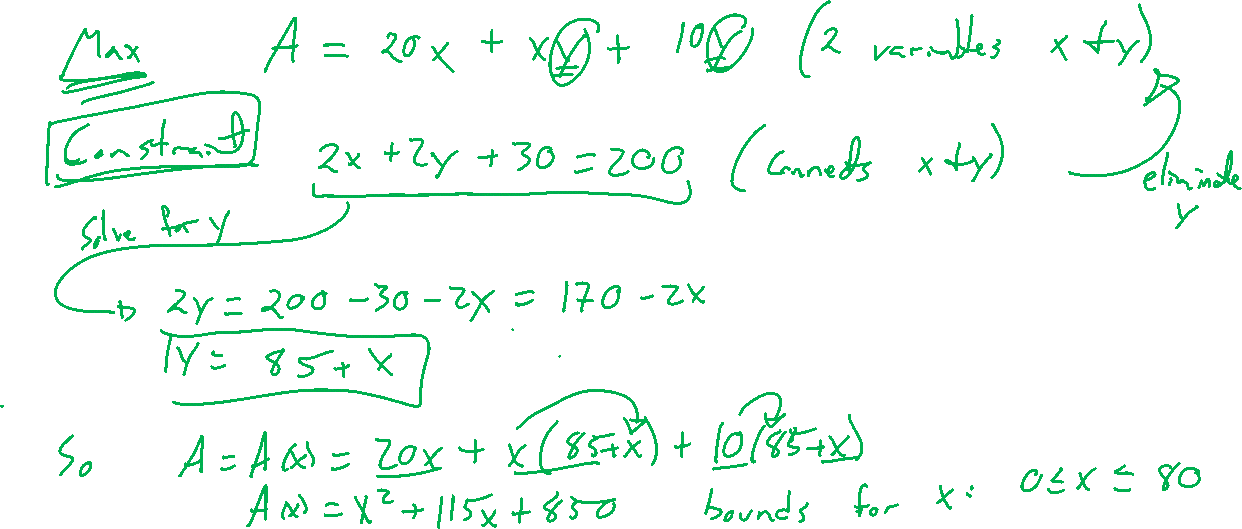 Max A = 20x + xy + 10y (2 variables x + y)
Constraint 2x + 2y + 30 = 200 (connects x + y) eliminate y
Solve for y
2y = 200 - 30 - 2x = 170 - 2x
y = 85 + x
So A = A(x) = 20x + x(85+x) + 10(85+x)
A(x) = x² + 115x + 850 bounds for x: 0 ≤ x ≤ 80